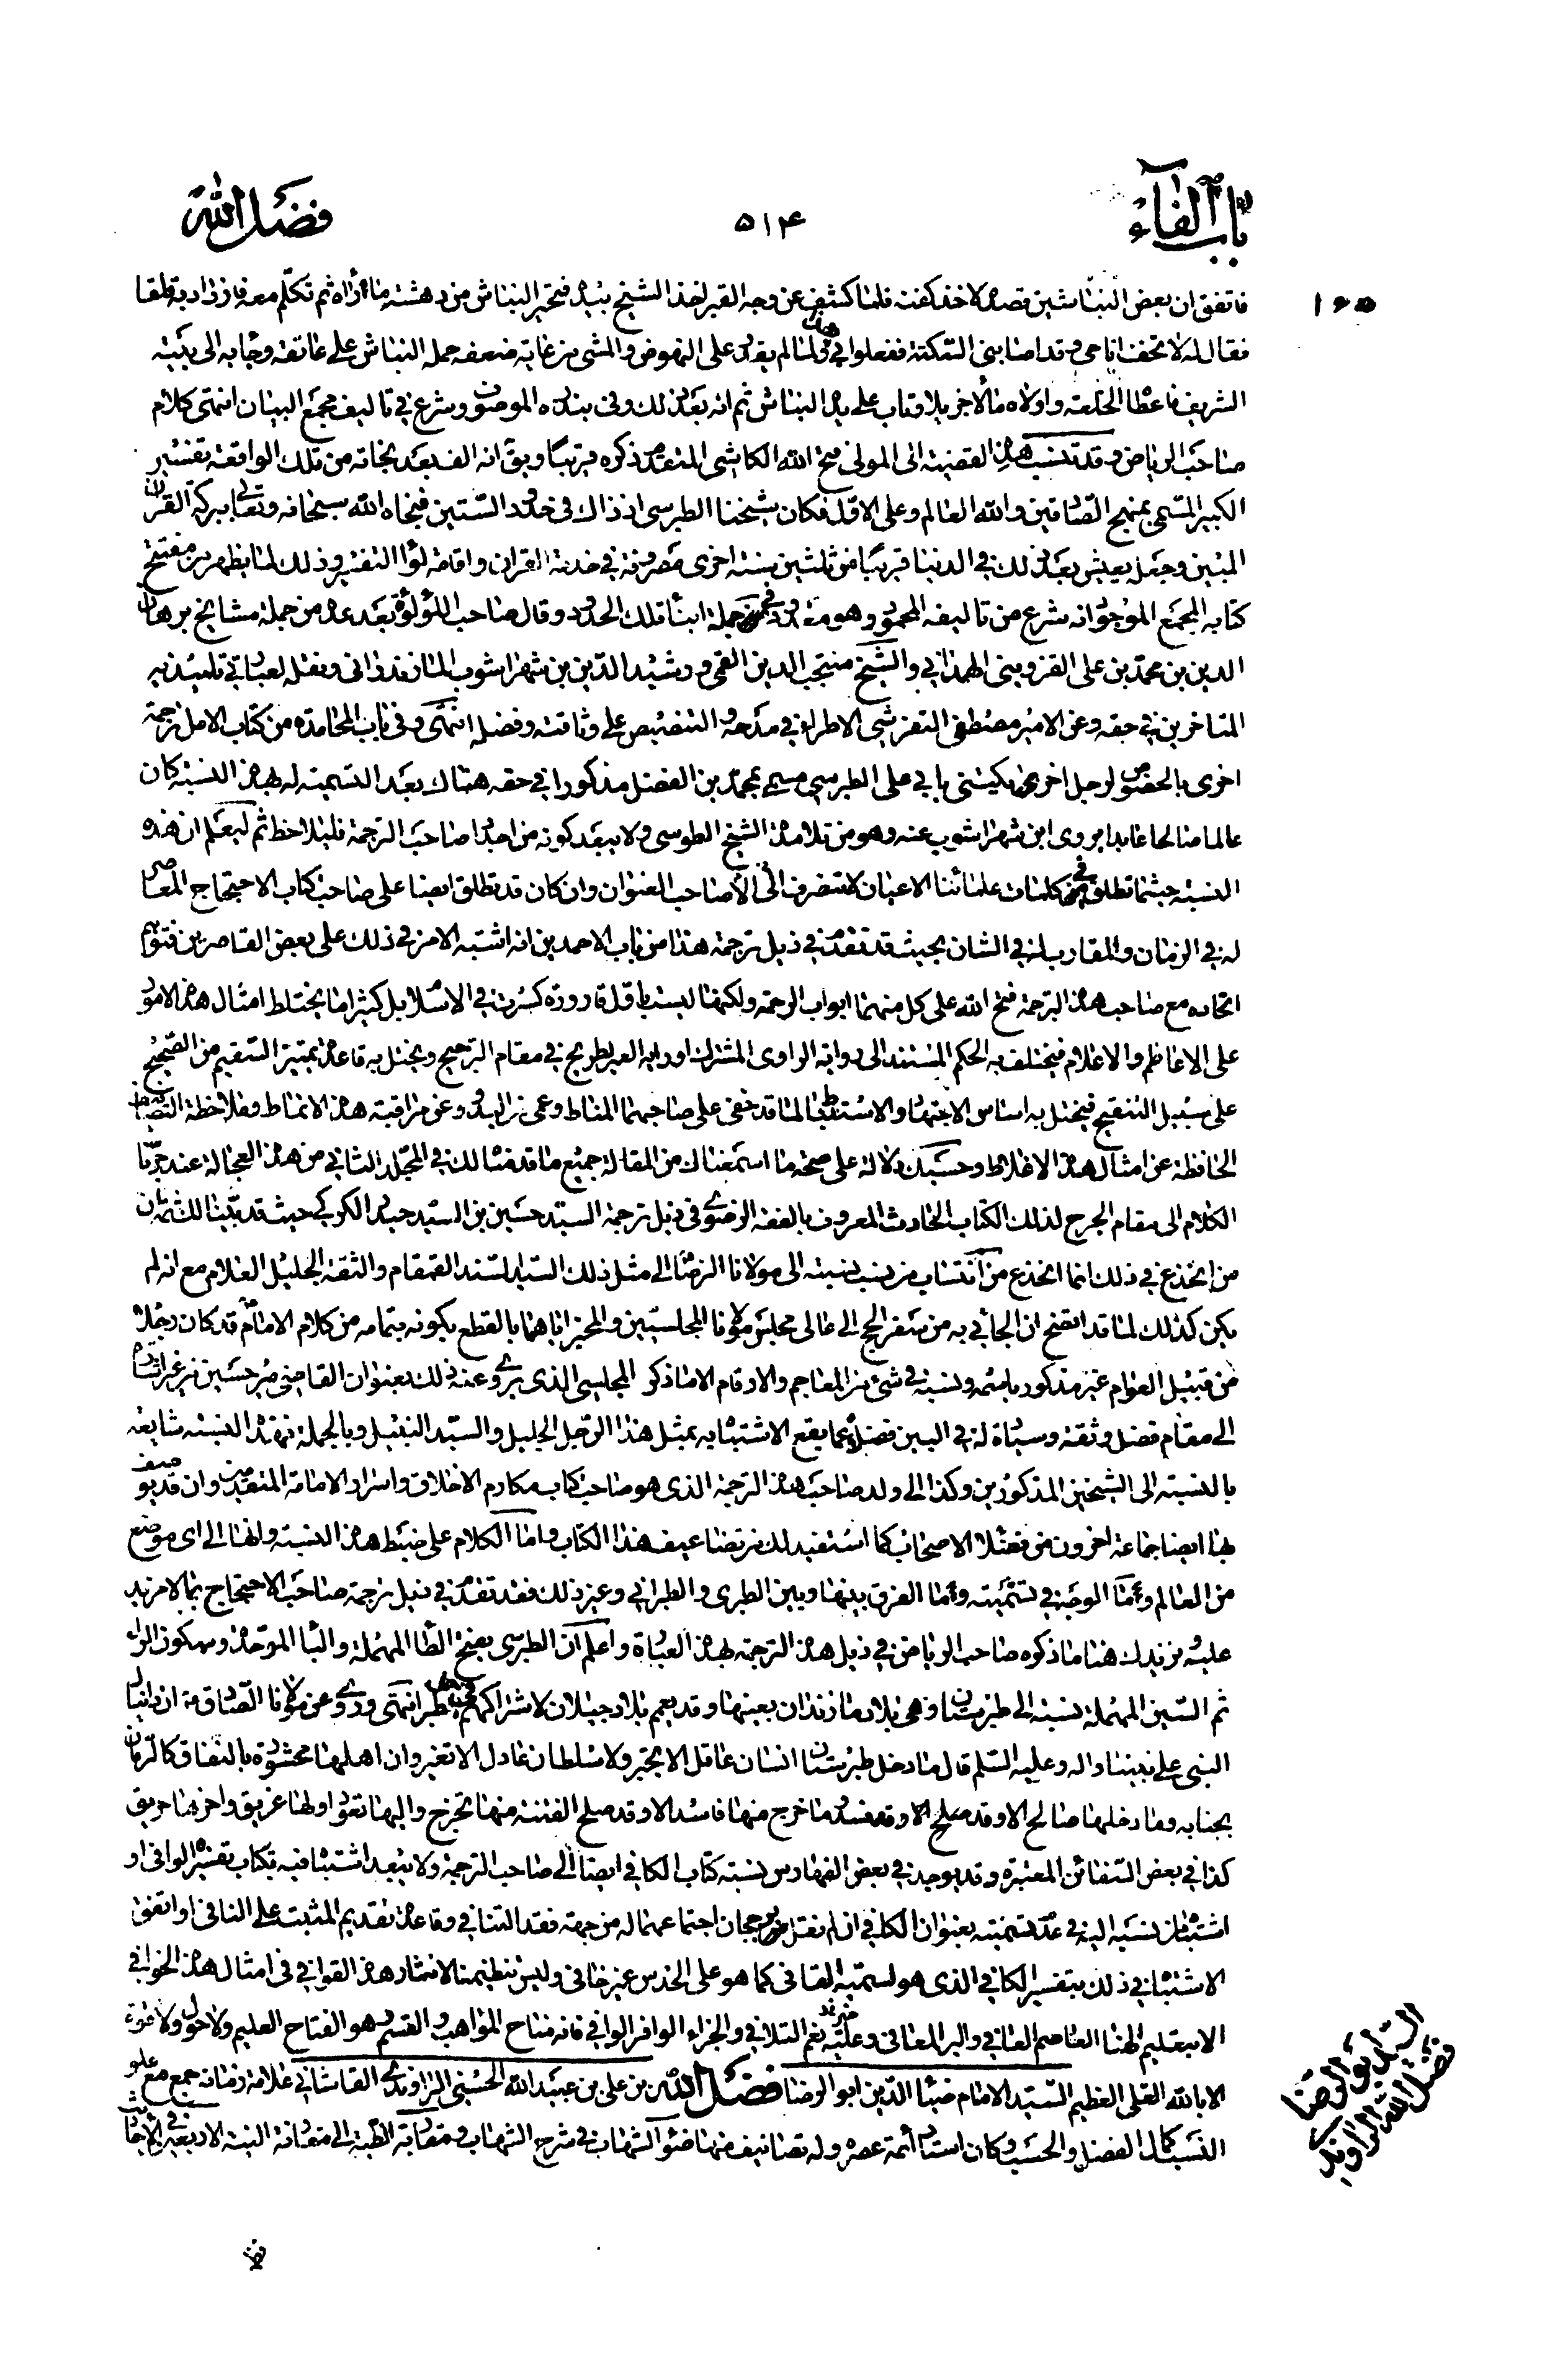 باب الفاء
٥١۴
فضل الله
١۶۵
فاتفق ان بعض النباشين قصده لاخذ كفنه فلما كشف عن وجه القبر اخذ الشيخ بيده فتحير النباش من دهشة ما رآه ثم تكلم معه فازداد به قلقا
فقال له لا تخف انا حي وقد اصابني السكتة ففعلوا بي هذا ولما لم يقدر على النهوض والمشي من غاية ضعفه حمله النباش على عاتقه وجاء به الى بيته
الشريف فاعطاه الخلعة واولاه مالا جزيلا وتاب على يده النباش ثم انه بعد ذلك وفى بنذره الموصوف وشرع في تاليف مجمع البيان انتهى كلام
صاحب الرياض وقد تنسب هذه القضية الى المولى فتح الله الكاشي المتقدم ذكره قريبا ويق انه الف بعد نجاته من تلك الواقعة تفسيره
الكبير المسمى بمنهج الصادقين والله العالم وعلى الاول فكان شيخنا الطبرسي اذ ذاك في حدود الستين فنجاه الله سبحانه وتعالى ببركة القرآن
المبين وجعله يعيش بعد ذلك في الدنيا قريبا من ثلثين سنة اخرى مصروفة في خدمة القران واقامة لواء التفسير وذلك لما يظهر من مفتتح
كتابه المجمع الموجود انه شرع من تاليفه المحمود وهو من جملة ابناء تلك الحدود وقال صاحب اللؤلؤة بعد عده من جملة مشايخ برهان
الدين بن محمد بن علي القزويني الهمداني والشيخ منتجب الدين القمي ورشيد الدين بن شهراشوب المازندراني ونقله لعبارتي تلميذيه
المتاخرين في حقه وعن الامير مصطفى التفرشي الاطراء في مدحه والتنصيص على وثاقته وفضله انتهى وفي باب المحامدة من كتاب الامل ترجمة
اخرى بالخصوص لرجل اخر يكنى بابي علي الطبرسي مسمى بمحمد بن الفضل مذكورا في حقه هناك بعد التسمية له بهذه النسبة كان
عالما صالحا عابدا يروى ابن شهراشوب عنه وهو من تلامذة الشيخ الطوسي ولا يبعد كونه من اجداد صاحب الترجمة فليلاحظ ثم ليعلم ان هذه
النسبة حيثما تطلق في كلمات علمائنا الاعيان لا تنصرف الا الى صاحب العنوان وان كان قد تطلق ايضا على صاحب كتاب الاحتجاج المعاصر
له في الزمان والمقارب له في الشان بحيث قد تقدم في ذيل ترجمة هذا من باب الاحمدين انه اشتبه الامر في ذلك على بعض القاصرين فتوهم
اتحاده مع صاحب هذه الترجمة فتح الله على كل منهما ابواب الرحمة ولكنها ليست باول قارورة كسرت في الاسلام بل كثيرا ما يختلط امثال هذه الامور
على الاعاظم والاعلام فيختلف به الحكم المستند الى رواية الراوى المشترك او رايه الغير لمرجح في مقام الترجيح ويختل به قاعدة تميز السقيم من الصحيح
على سبيل التنقيح فيختل به اساس الاجتهاد والاستنباط لما قد خفى على صاحبهما المناط وعمى عن مراقبة هذه الانماط وملاحظة
الحافظة عن امثال هذه الاغلاط وحسبك دلالة على صحة ما اسمعناك من المقالة جميع ما قدمنا لك في المجلد الثاني من هذه العجالة عند جرنا
الكلام الى مقام الجرح لذلك الكتاب الحادث المعروف بالفقه الرضوي في ذيل ترجمة السيد حسين بن السيد حيدر الكركي حيث قد بينا لك ثمة ان
من انخدع في ذلك انما انخدع من انتساب من ينسب نسبته الى مولانا الرضا الى مثل ذلك السيد السند القمقام والثقة الجليل العلام مع انه لم
يكن كذلك لما قد اتضح ان الجائي به من سفر الحج الى عالي مجلس مولانا المجلسيين والمخبر اياهما بالقطع بكونه بتمامه من كلام الامام قد كان رجلا
من قبيل العوام غير مذكور باسمه ونسبه في شئ من المعاجم والارقام الا ما ذكر المجلسي الذى يروي عنه ذلك بعنوان القاضي مير حسين من غير
الى مقام فضل وثقة وسيادة له في البين فضلا عما يقع الاشتباه به بمثل هذا الرجل الجليل والسيد النبيل وبالجملة فهذه النسبة شايعة
بالنسبة الى الشيخين المذكورين وكذا الى ولد صاحب هذه الترجمة الذى هو صاحب كتاب مكارم الاخلاق واسرار الامامة المتقدمين وان قد يوصف
بها ايضا جماعة اخرون من فضلاء الاصحاب كما استفيد لك من تضاعيف هذا الكتاب واما الكلام على ضبط هذه النسبة وانها الى اى موضع
من العالم واما الوجه في تسميته واما الفرق بينها وبين الطبرى والطبراني وغير ذلك فقد تقدم في ذيل ترجمة صاحب الاحتجاج بما لا مزيد
عليه ونزيدك هنا ما ذكره صاحب الرياض في ذيل هذه الترجمة بهذه العبارة واعلم ان الطبرسي بفتح الطاء المهملة والباء الموحدة وسكون الراء
ثم السين المهملة نسبة الى طبرستان وهى بلاد مازندران بعينها وقد يعم بلاد جيلان لاشتراكهم في طبر انتهى وروي عن مولانا الصادق ان دانيال
النبي على نبينا واله وعليه السلم قال ما دخل طبرستان انسان عاقل الا تحير ولا سلطان عادل الا تغير وان اهلها محشوة بالنفاق كالرمان
بحبابه وما دخلها صالح الا وقد فسد وما خرج منها فاسد الا وقد صلح الفتنة منها تخرج واليها تعود اولها غريق واخرها حريق
كذا في بعض السفائن المعتبرة وقد يوجد في بعض الفهارس نسبة كتاب الكافي ايضا الى صاحب الترجمة ولا يبعد اشتباه فيه بكتاب تفسيره الوافي او
اشتباه من نسبه اليه في عدم تسميته بعنوان الكاف ان لم نقل برجحان اجتماعهما له من جهة فقد التنافي وقاعدة تقديم المثبت على النافي او اتفق
الاشتباه في ذلك بتفسير الكافي الذى هو لسميه القاني كما هو على الحدس غير خافي وليس تنظيمنا لانتثار هذه القوافي في امثال هذه الخوافي
الا بتعليم الهنا العاصم العافي والبر المعافي وعليه نعم التلافي والجزاء الوافر الوافي فانه مناح المواهب والقسم وهو الفتاح العليم ولا حول ولا قوة
الا بالله العلى العظيم السيد الامام ضياء الدين ابو الرضا فضل الله بن علي بن عبيد الله الحسني الراوندي القاشاني علامة زمانه جمع مع علو
النسب كمال الفضل والحسب وكان استاد أئمة عصره وله تصانيف منها ضوء الشهاب في شرح الشهاب ومقاربة الطية الى مقارنة النية الاربعين في الأحاديث
السيد ابو الرضا
فضل الله الراوندي